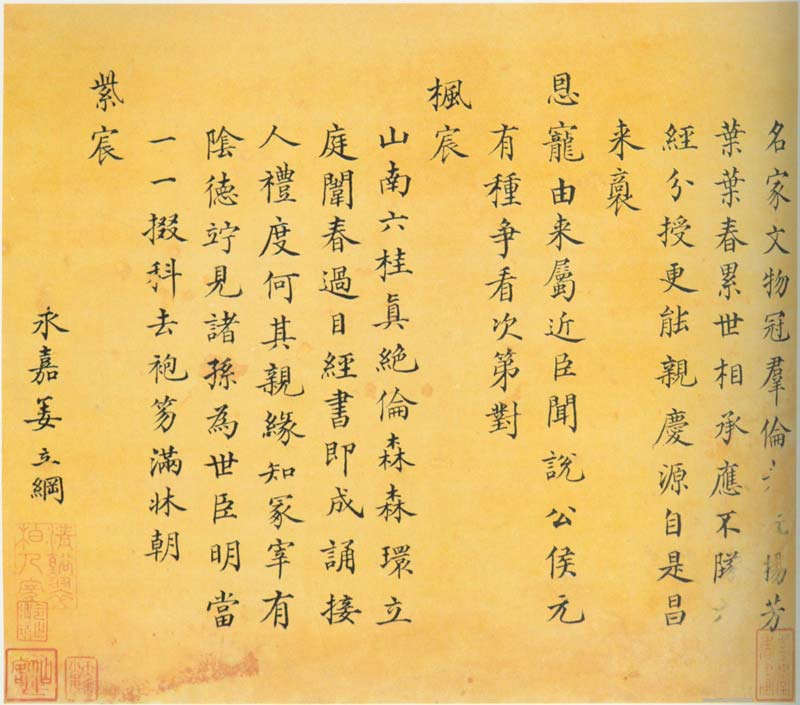 名家文物冠羣倫揚芳
葉葉春累世相承應不六
經分授更能親慶源自是昌
来裔
恩寵由来屬近臣聞說公侯元
有種争看次第對
楓宸
山南六桂眞絶倫森森環立
庭闈春過目經書即成誦接
人禮度何其親緣知冢宰有
陰徳竚見諸孫為世臣明當
一一掇科去袍笏滿牀朝
紫宸
永嘉姜立綱